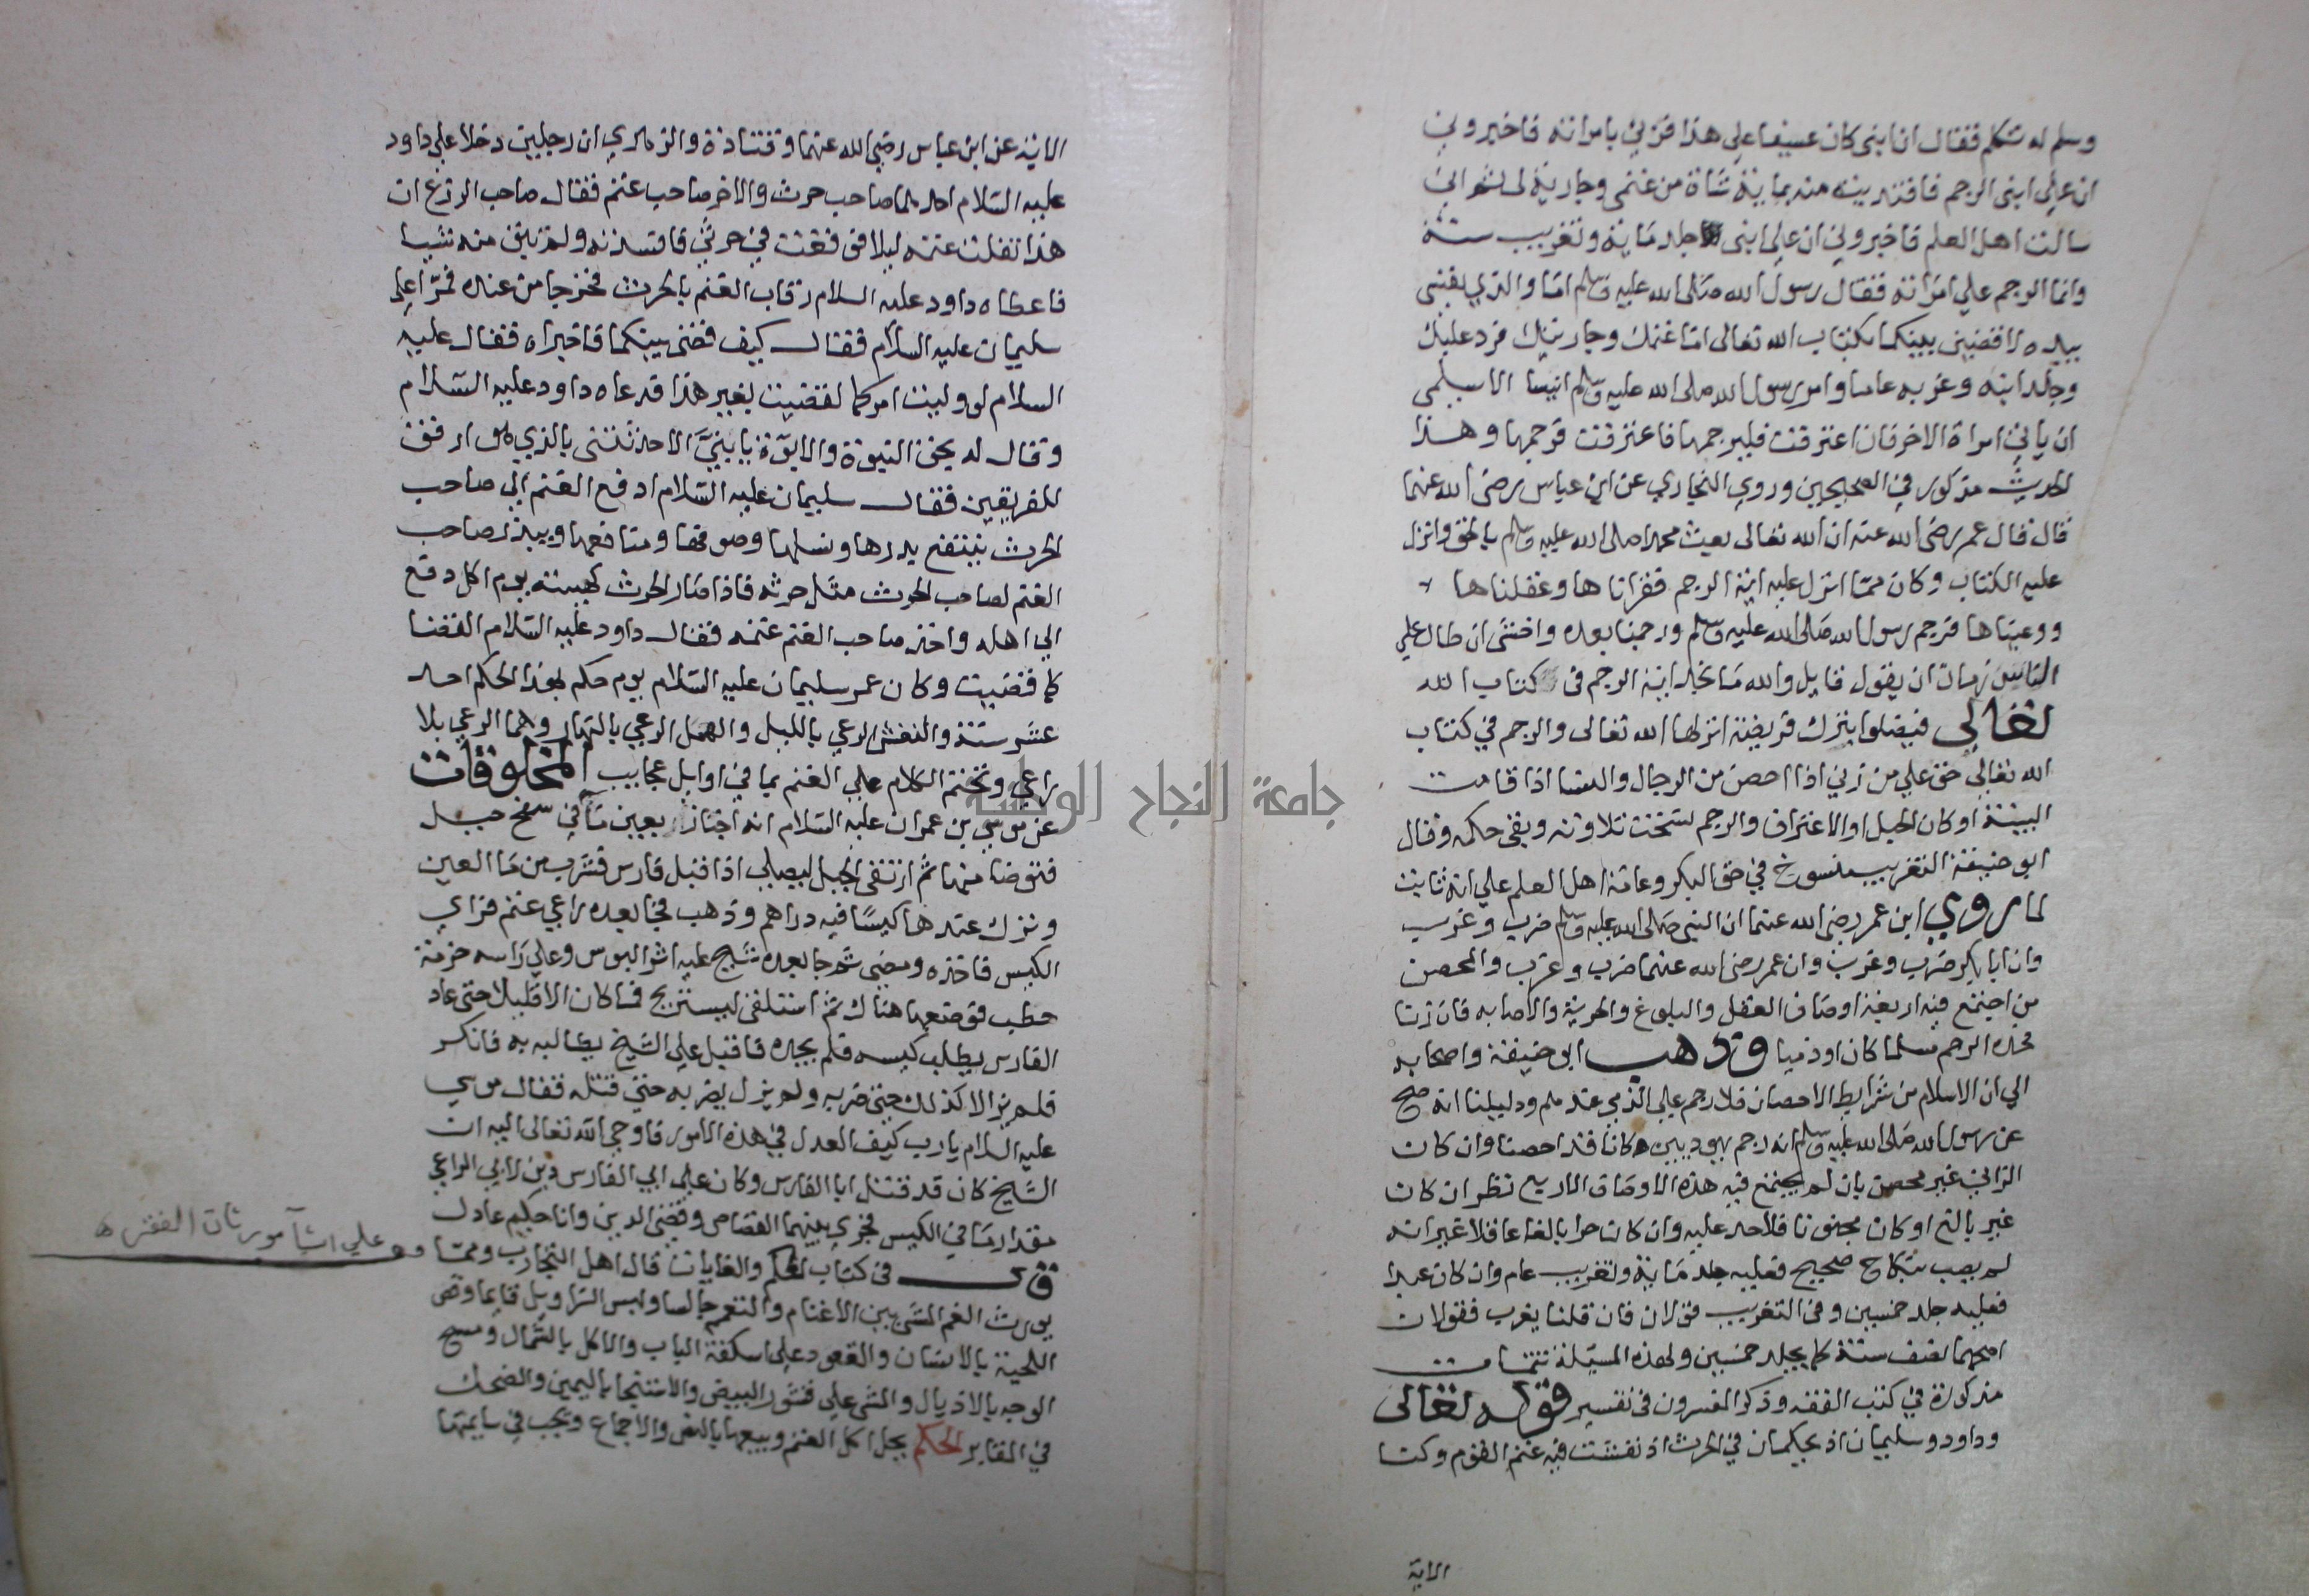 وسلم له تكلم فقال ان ابني كان عسيفا علي هذا فزني بامراته فاخبروني
ان علي ابني الرجم فافتديته منه بماية شاة من غنمي وجارية لي ثم اني
سالت اهل العلم فاخبروني ان علي ابني جلد ماية وتغريب سنة
وانما الرجم علي امراته فقال رسول الله صلى الله عليه وسلم اما والذي نفسي
بيده لاقضين بينكما بكتاب الله تعالى اما غنمك وجاريتك فرد عليك
وجلد ابنه وغربه عاما وامر رسول الله صلى الله عليه وسلم انيسا الاسلمي
ان ياتي امراة الاخر فان اعترفت فليرجمها فاعترفت فرجمها وهذا
الحديث مذكور في الصحيحين وروي البخاري عن ابن عباس رضي الله عنهما
قال قال عمر رضي الله عنه ان الله تعالى بعث محمدا صلى الله عليه وسلم بالحق وانزل
عليه الكتاب وكان مما انزل عليه اية الرجم فقراناها وعقلناها
ووعيناها فرجم رسول الله صلى الله عليه وسلم ورجمنا بعده واخشي ان طال علي
الناس زمان ان يقول قايل والله ما نجد اية الرجم في كتاب الله
تعالي فيضلوا بترك فريضة انزلها الله تعالى والرجم في كتاب
الله تعالى حق علي من زني اذا احصن من الرجال والنسا اذا قامت
البينة او كان الحبل او الاعتراف والرجم نسخت تلاوته وبقي حكمه وقال
ابو حنيفة التغريب منسوخ في حق البكر وعامة اهل العلم علي انه ثابت
لما روي ابن عمر رضي الله عنهما ان النبي صلى الله عليه وسلم ضرب وغرب
وان ابا بكر ضرب وغرب وان عمر رضي الله عنهما ضرب وغرب والمحصن
من اجتمع فيه اربعة اوصاف العقل والبلوغ والحرية والاصابه فان زنا
فحده الرجم مسلما كان او ذميا وذهب ابو حنيفة واصحابه
الي ان الاسلام من شرايط الاحصان فلا رجم علي الذمي عندهم ودليلنا انه صح
عن رسول الله صلى الله عليه وسلم انه رجم يهوديين كانا قد احصنا وان كان
الزاني غير محصن بان لم يجتمع فيه هذه الاوصاف الاربع نظر ان كان
غير بالغ او كان مجنونا فلا حد عليه وان كان حرا بالغا عاقلا غير انه
لم يصب بنكاح صحيح فعليه جلد ماية وتغريب عام وان كان عبدا
فعليه جلد خمسين وفي التغريب قولان فان قلنا يغرب فقولان
اصحهما نصف سنة كما يجلد خمسين ولهذه المسيلة تتمات
مذكورة في كتب الفقه وذكر المفسرون في تفسير قوله تعالى
وداود وسليمان اذ يحكمان في الحرث اذ نفشت فيه غنم القوم وكنا
الاية
الاية عن ابن عباس رضي الله عنهما وقتادة والزهري ان رجلين دخلا علي داود
عليه السلام احدهما صاحب حرث والاخر صاحب غنم فقال صاحب الزرع ان
هذا نفلت غنمه ليلا فوقعت في حرثي فافسدته ولم تبق منه شيا
فاعطاه داود عليه السلام رقاب الغنم بالحرث فخرجا من عنده فمرا علي
سليمان عليه السلام فقال كيف قضي بينكما فاخبراه فقال عليه
السلام لو وليت امركما لقضيت بغير هذا فدعاه داود عليه السلام
وقال له بحق النبوة والابوة يا بني الا حدثتني بالذي هو ارفق
للفريقين فقال سليمان عليه السلام ادفع الغنم الي صاحب
الحرث ينتفع بدرها ونسلها وصوفها ومنافعها ويبذر صاحب
الغنم لصاحب الحرث مثل حرثه فاذا صار الحرث كهيئته يوم اكل دفع
الي اهله واخذ صاحب الغنم غنمه فقال داود عليه السلام القضا
كما قضيت وكان عمر سليمان عليه السلام يوم حكم بهذا الحكم احد
عشر سنة والنفش الرعي بالليل والهمل الرعي بالنهار وهما الرعي بلا
راعي ونختم الكلام علي الغنم بما في اوايل عجايب المخلوقات
عن موسي بن عمران عليه السلام انه اجتاز بعين ما في سفح جبل
فتوضا منها ثم ارتقي الجبل ليصلي اذ اقبل فارس فشرب من ما العين
وترك عندها كيسا فيه دراهم وذهب فجا بعده راعي غنم فراي
الكيس فاخذه ومضي ثم جا بعده شيخ عليه اثر البوس وعلي راسه حزمة
حطب فوضعها هناك ثم استلقي ليستريح فما كان الا قليلا حتي عاد
الفارس يطلب كيسه فلم يجده فاقبل علي الشيخ يطالبه به فانكر
فلم يزالا كذلك حتي ضربه ولم يزل يضربه حتي قتله فقال موسي
عليه السلام يا رب كيف العدل في هذه الامور فاوحي الله تعالى اليه ان
الشيخ كان قد قتل ابا الفارس وكان علي ابي الفارس دين لابي الراعي
مقدار ما في الكيس فجري بينهما القصاص وقضي الدين وانا حكيم عادل
قال في كتاب الحكم والغايات قال اهل التجارب ومما
يورث الغم المشي بين الاغنام والتعمم جالسا ولبس السراويل قايما وقص
اللحية بالاسنان والقعود علي اسكفة الباب والاكل بالشمال ومسح
الوجه بالاذيال والمشي علي قشور البيض والاستنجا باليمين والضحك
في المقابر الحكم يحل اكل الغنم وبيعها بالنص والاجماع ويجب في سايمتها
علي اشيا مورثات الفقر
جامعة النجاح الوطنية